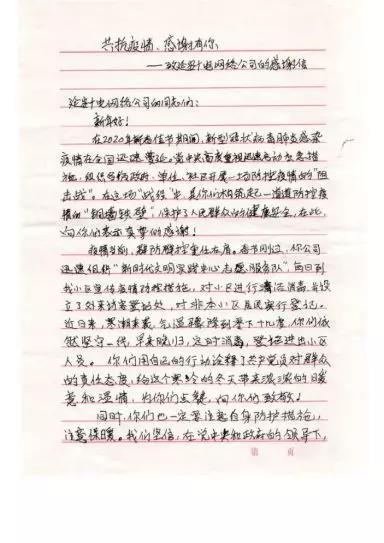 共抗疫情、感谢有你
——致延安广电网络公司的感谢信
延安广电网络公司的同知们:
新年好!
在2020年新春佳节期间,新型冠状病毒肺炎感染
疫情在全国迅速蔓延。党中央高度重视迅速启动应急措
施,组织号称政府、单位、社区开展一场防控疫情的"阻
击战"。在这场"战役"中,是你们构筑起一道道防控疫
情的"铜墙铁壁",保护了人民群众的健康安全,在此,
向你们表示真挚的感谢!
疫情当前,群防群控重任在肩。春节间,你公司
迅速组织"新时代文明实践中心志愿服务队",每日到
我小区宣传疫情防控措施,对小区进行清洁消毒,并设
立了外来访客登记处,对非本小区居民实行登记。
近日来,寒潮来袭,气温骤降到零下十几度,你们依
然坚守一线,早来晚归,定时消毒,登记进出小区
人员。你们用自己的行动诠释了共产党员对群众
的责任态度,给这个寒冷的冬天带来浓浓的暖
意和温情,为你们点赞,向你们致敬!
同时,你们也一定要注意自身防护措施,
注意保暖。我们坚信,在党中央和政府的领导下,
第 页